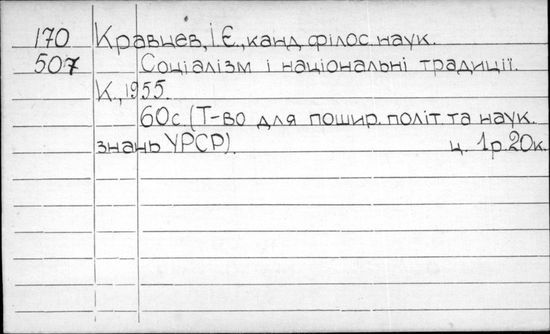 170 Кравцев, І. Є., канд. філос. наук.
507 Соціалізм і національні традиції.
К., 1955.
60с. (Т-во для пошир. політ. та наук.
знань УРСР). ц. 1р.20к.